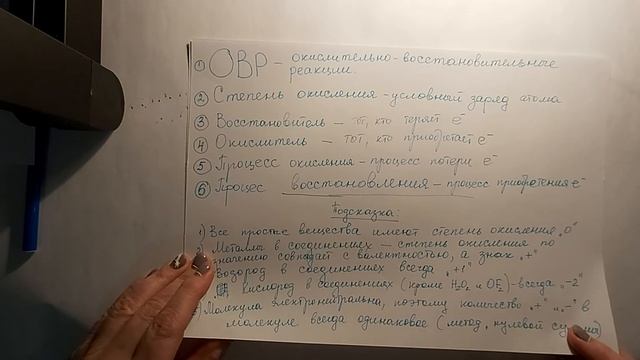 ① ОВР – окислительно-восстановительные
реакции.
② Степень окисления - условный заряд атома
③ Восстановитель – тот, кто теряет e⁻
④ Окислитель – тот, кто приобретает e⁻
⑤ Процесс окисления - процесс потери e⁻
⑥ Процес восстановления - процесс приобретения e⁻
Подсказка:
1) Все простые вещества имеют степень окисления „0"
2) Металлы в соединениях – степень окисления по
значению совпадает с валентностью, а знак „+"
Водород в соединениях всегда „+1"
кислород в соединениях (кроме H₂O₂ и OF₂) - всегда „-2"
Молекула электронейтральна, поэтому количество „+" и „-" в
молекуле всегда одинаковое (метод нулевой